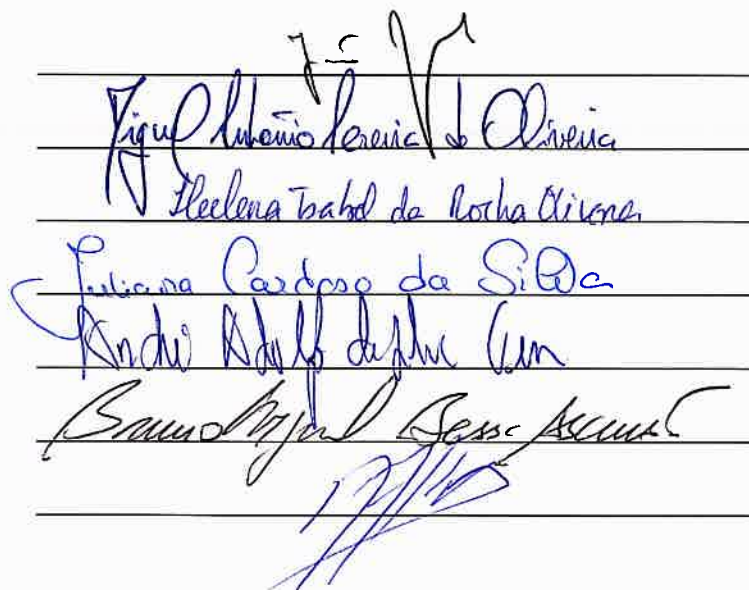 Miguel António Pereira de Oliveira
Helena Isabel da Rocha Oliveira
Juliana Cardoso da Silva
André Adolfo da Silva
Bruno Miguel Bessa Ascensão